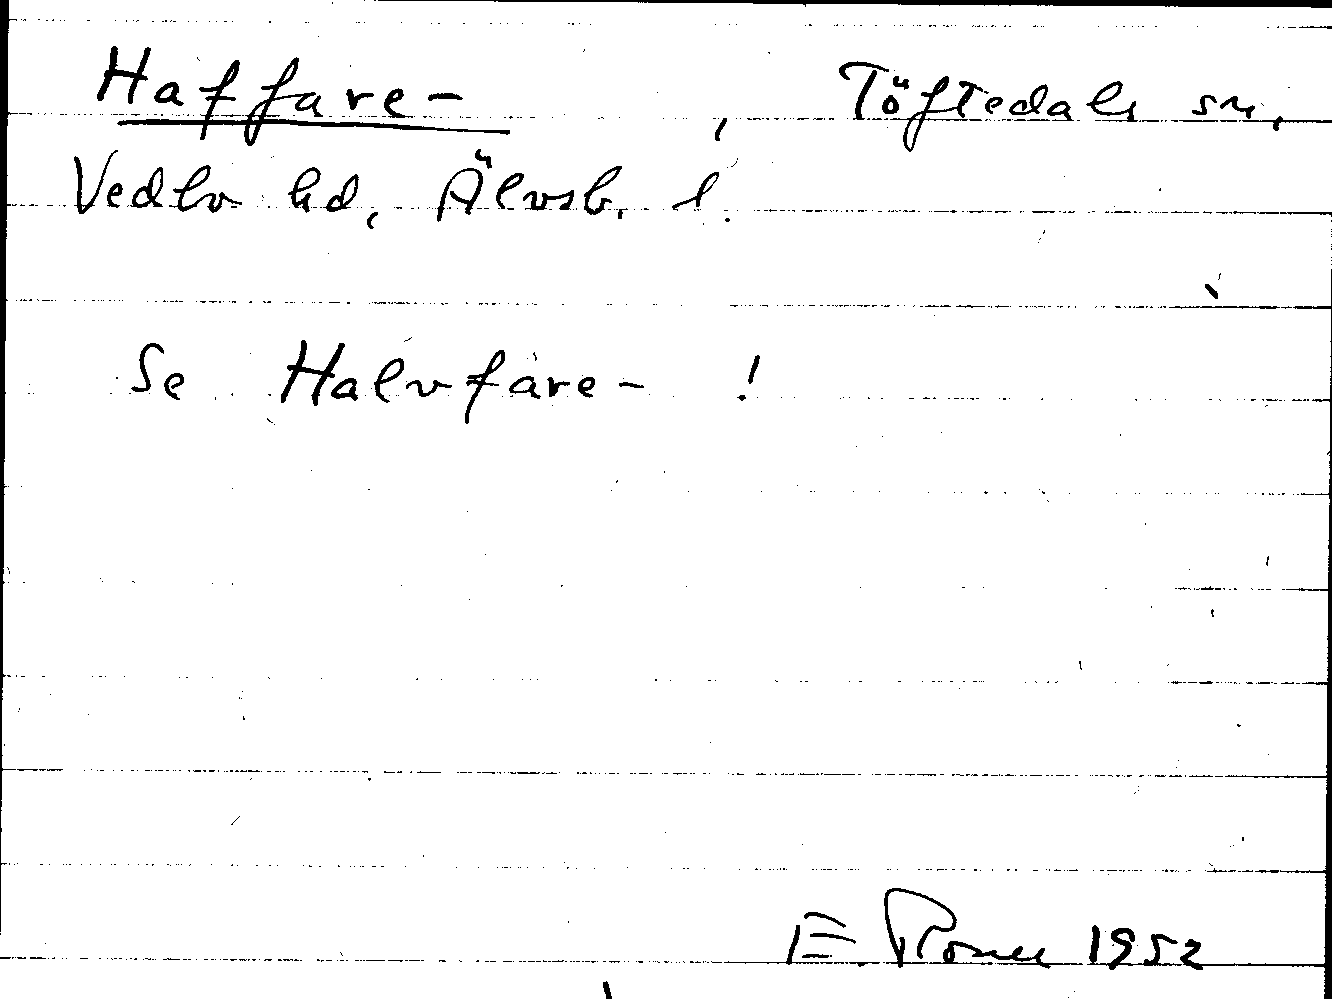 Haffare- , Töftedals sn,
Vedbo hd, Älvsb. l.
Se Halvfare- !
E. Rosell 1952